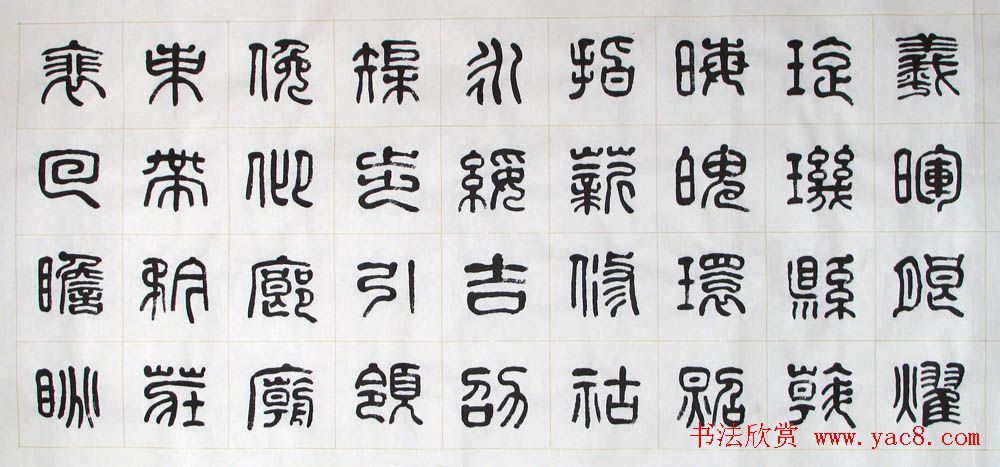 羲暉朖燿
琁璣縣斡
晦魄環照
指薪修祜
永綏吉劭
榘步引領
俛仰廊廟
束帶矜莊
裵回瞻眺
书法欣赏 www.yac8.com